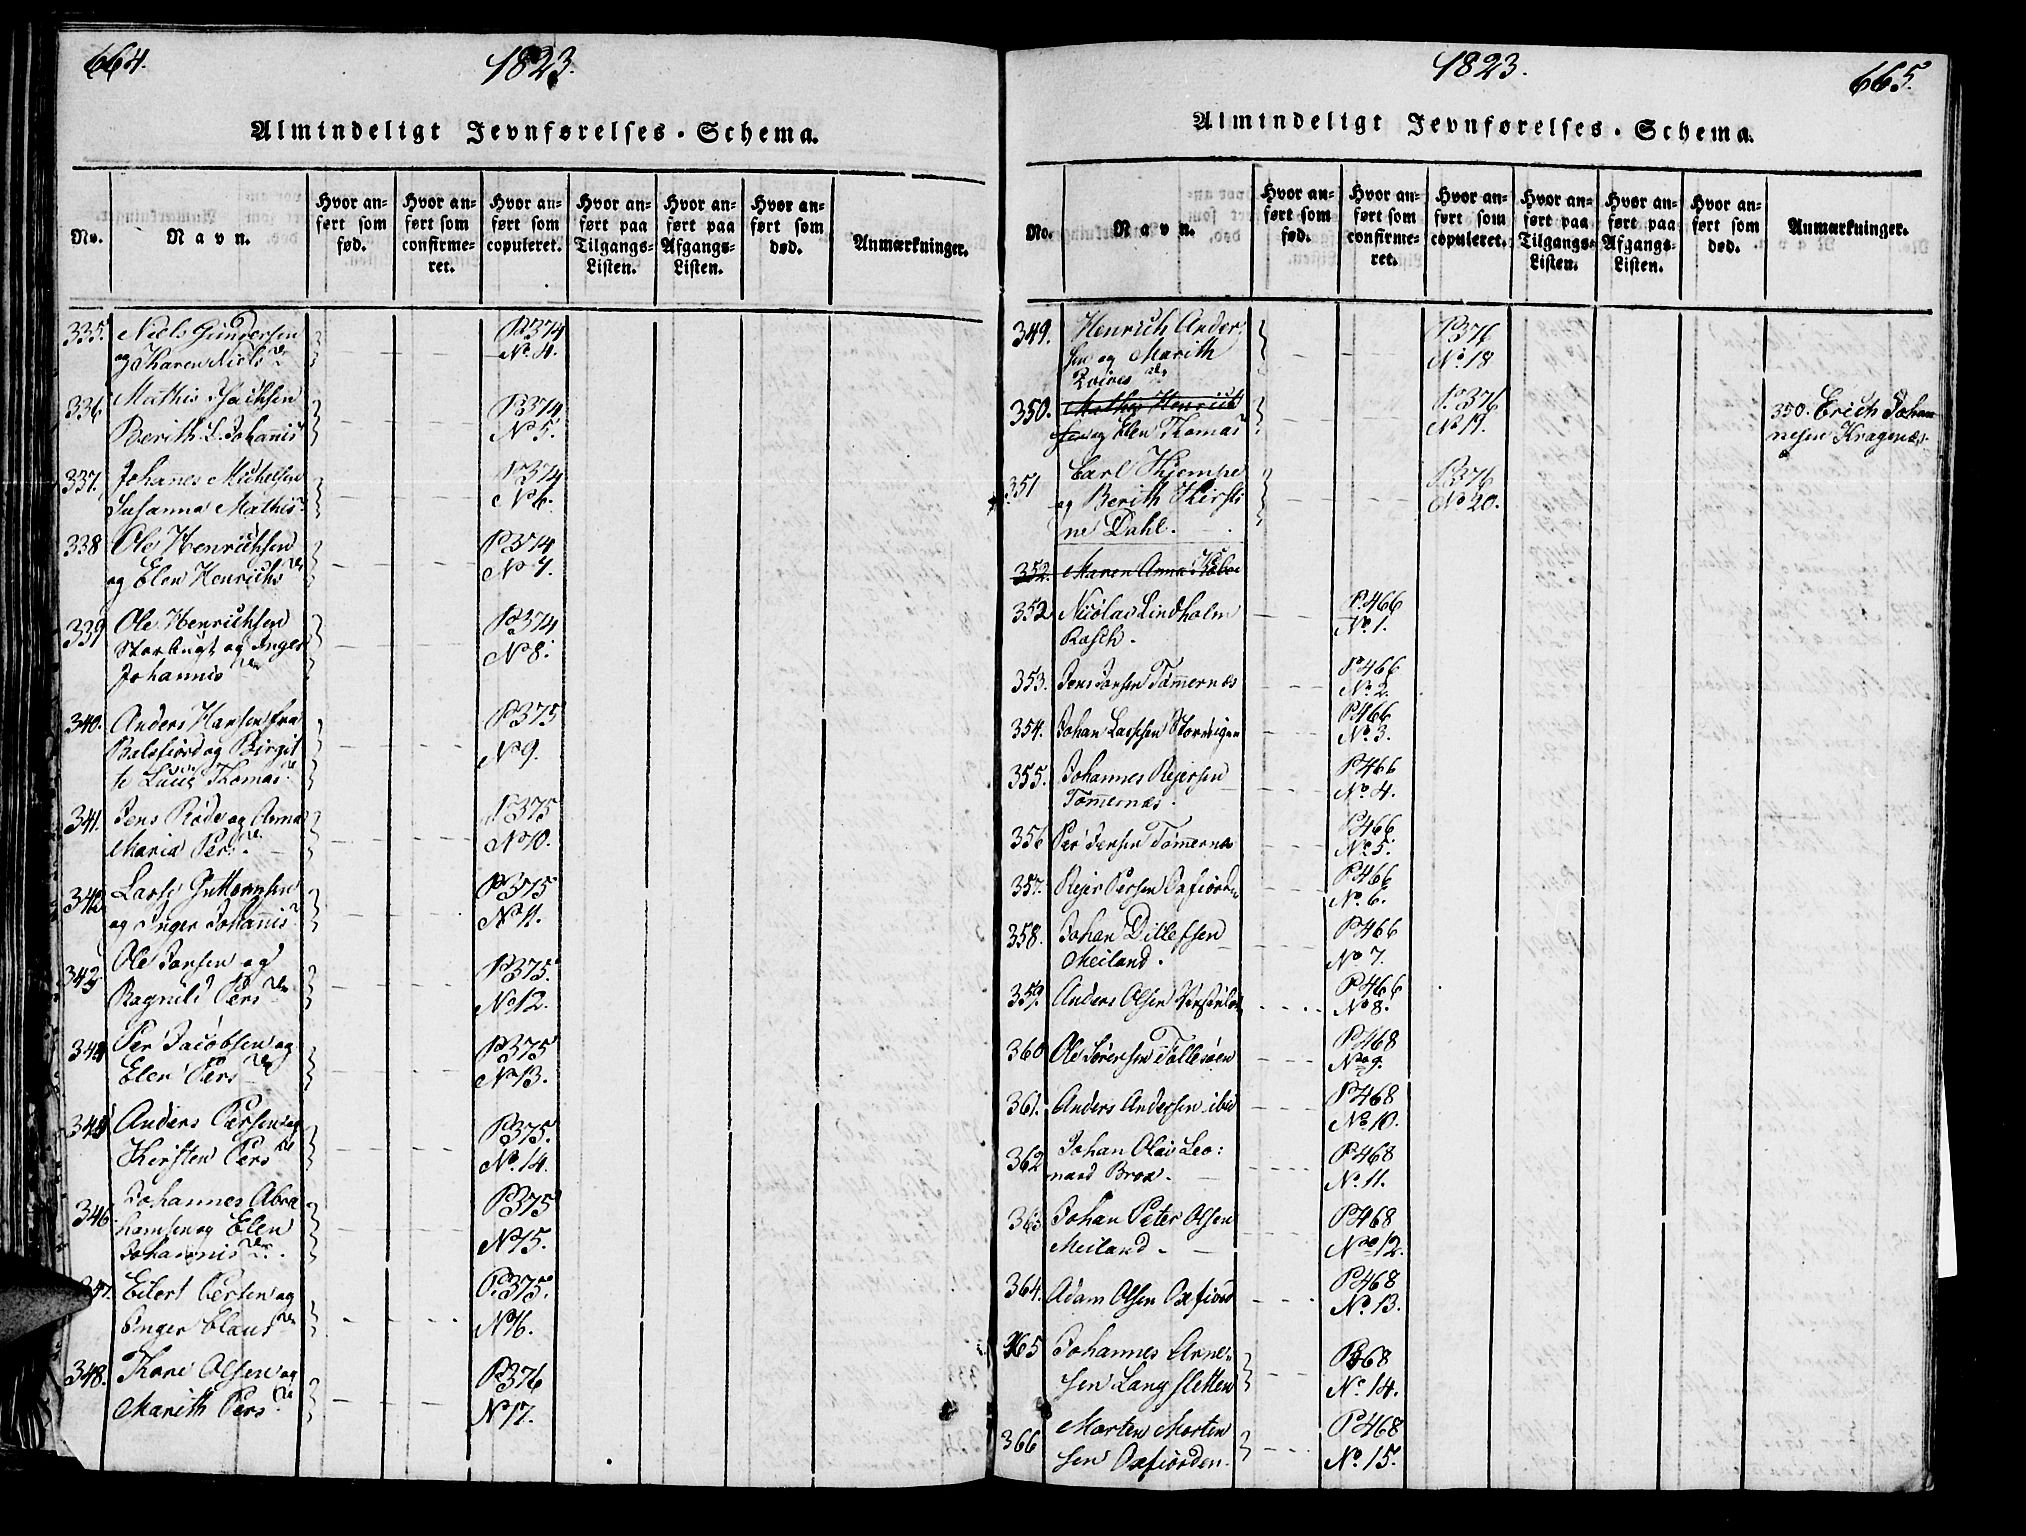 664.
1823.
Almindeligt Jevnførelses-Schema.
No.
Navn.
Hvor anført som fød.
Hvor anført som confirmeret.
Hvor anført som copuleret.
Hvor anført paa Tilgangs-Listen.
Hvor anført paa Afgangs-Listen.
Hvor anført som død.
Anmærkninger.
335. Niels Gundersen P 374
og Karen Niels Dr No. 4.
336 Mathis Isachsen P 374
Berith L. Johannis No 5.
337. Johannes Michelsen P 374
Susanna Mathis No 6.
338 Ole Henrichsen P 374
og Elen Henrichs Dr No 7.
339 Ole Henrichsen P 374
Storbugt og Inger No 8.
Johannis Dr
340. Anders Hansen fra P 375
Balsfiord og Birgit No 9.
te Lucie Thomas D
341. Jens Røde og Anna P 375
Maria Pers Dr No 10.
342 Lars Guttormsen P 375
og Inger Johannis No 11.
343 Ole Jonsen og P 375.
Ragnild Pers Dr No 12.
344 Per Jacobsen og P 375
Elen Pers Dr No 13.
345 Anders Persen og P 375.
Kirsten Pers Dr No. 14.
346 Johannes Abra P 375
hamsen og Elen No 15.
Johannis Dr.
347. Eilert Persen og P. 375.
Inger Claus Dr No 16.
348. Thore Olsen og P 376
Marith Pers D No 17.
1823.
665.
Almindeligt Jevnførelses-Schema.
No.
Navn.
Hvor anført som fød.
Hvor anført som confirmeret.
Hvor anført som copuleret.
Hvor anført paa Tilgangs-Listen.
Hvor anført paa Afgangs-Listen.
Hvor anført som død.
Anmærkninger.
349. Henrich Ander P 376
sen og Marith No 18
Dr
350. Mathis Henrich P. 376 350. Erich Johan
sen og Elen Thomas D No 19. nesen Kragenæs.
351 Carl Kjempe P 376
og Berith Kirsti No 20.
ne Dahl.
352. Maren Anna
352 Nicolas Lindholm P. 466
Rasch. No. 1.
353. Jens Jonsen Tømmernæs P 466
No. 2.
354. Johan Larssen Storvigen P 466
No. 3.
355. Johannes Reiersen P 466
Tømmernæs. No 4.
356 Per Jensen Tømmernæs P 466
No 5.
357. Reier Persen Oxfiorden P 466
No. 6.
358. Johan Ditlefsen P 466
Meiland. No 7.
359. Anders Olsen P 466
No 8.
360 Ole Sørensen P 468
No 9.
361. Anders Andersen ibid P 468
No. 10.
362 Johan Olai Leo: P 468
nard Brox. No 11.
363 Johan Peter Olsen P 468
Meiland. No 12.
364. Adam Olsen Oxfiord P 468
No. 13.
365 Johannes Arne- P 468
sen Langsletten No 14.
366 Morten Morten P 468
sen Oxfiorden. No. 15.